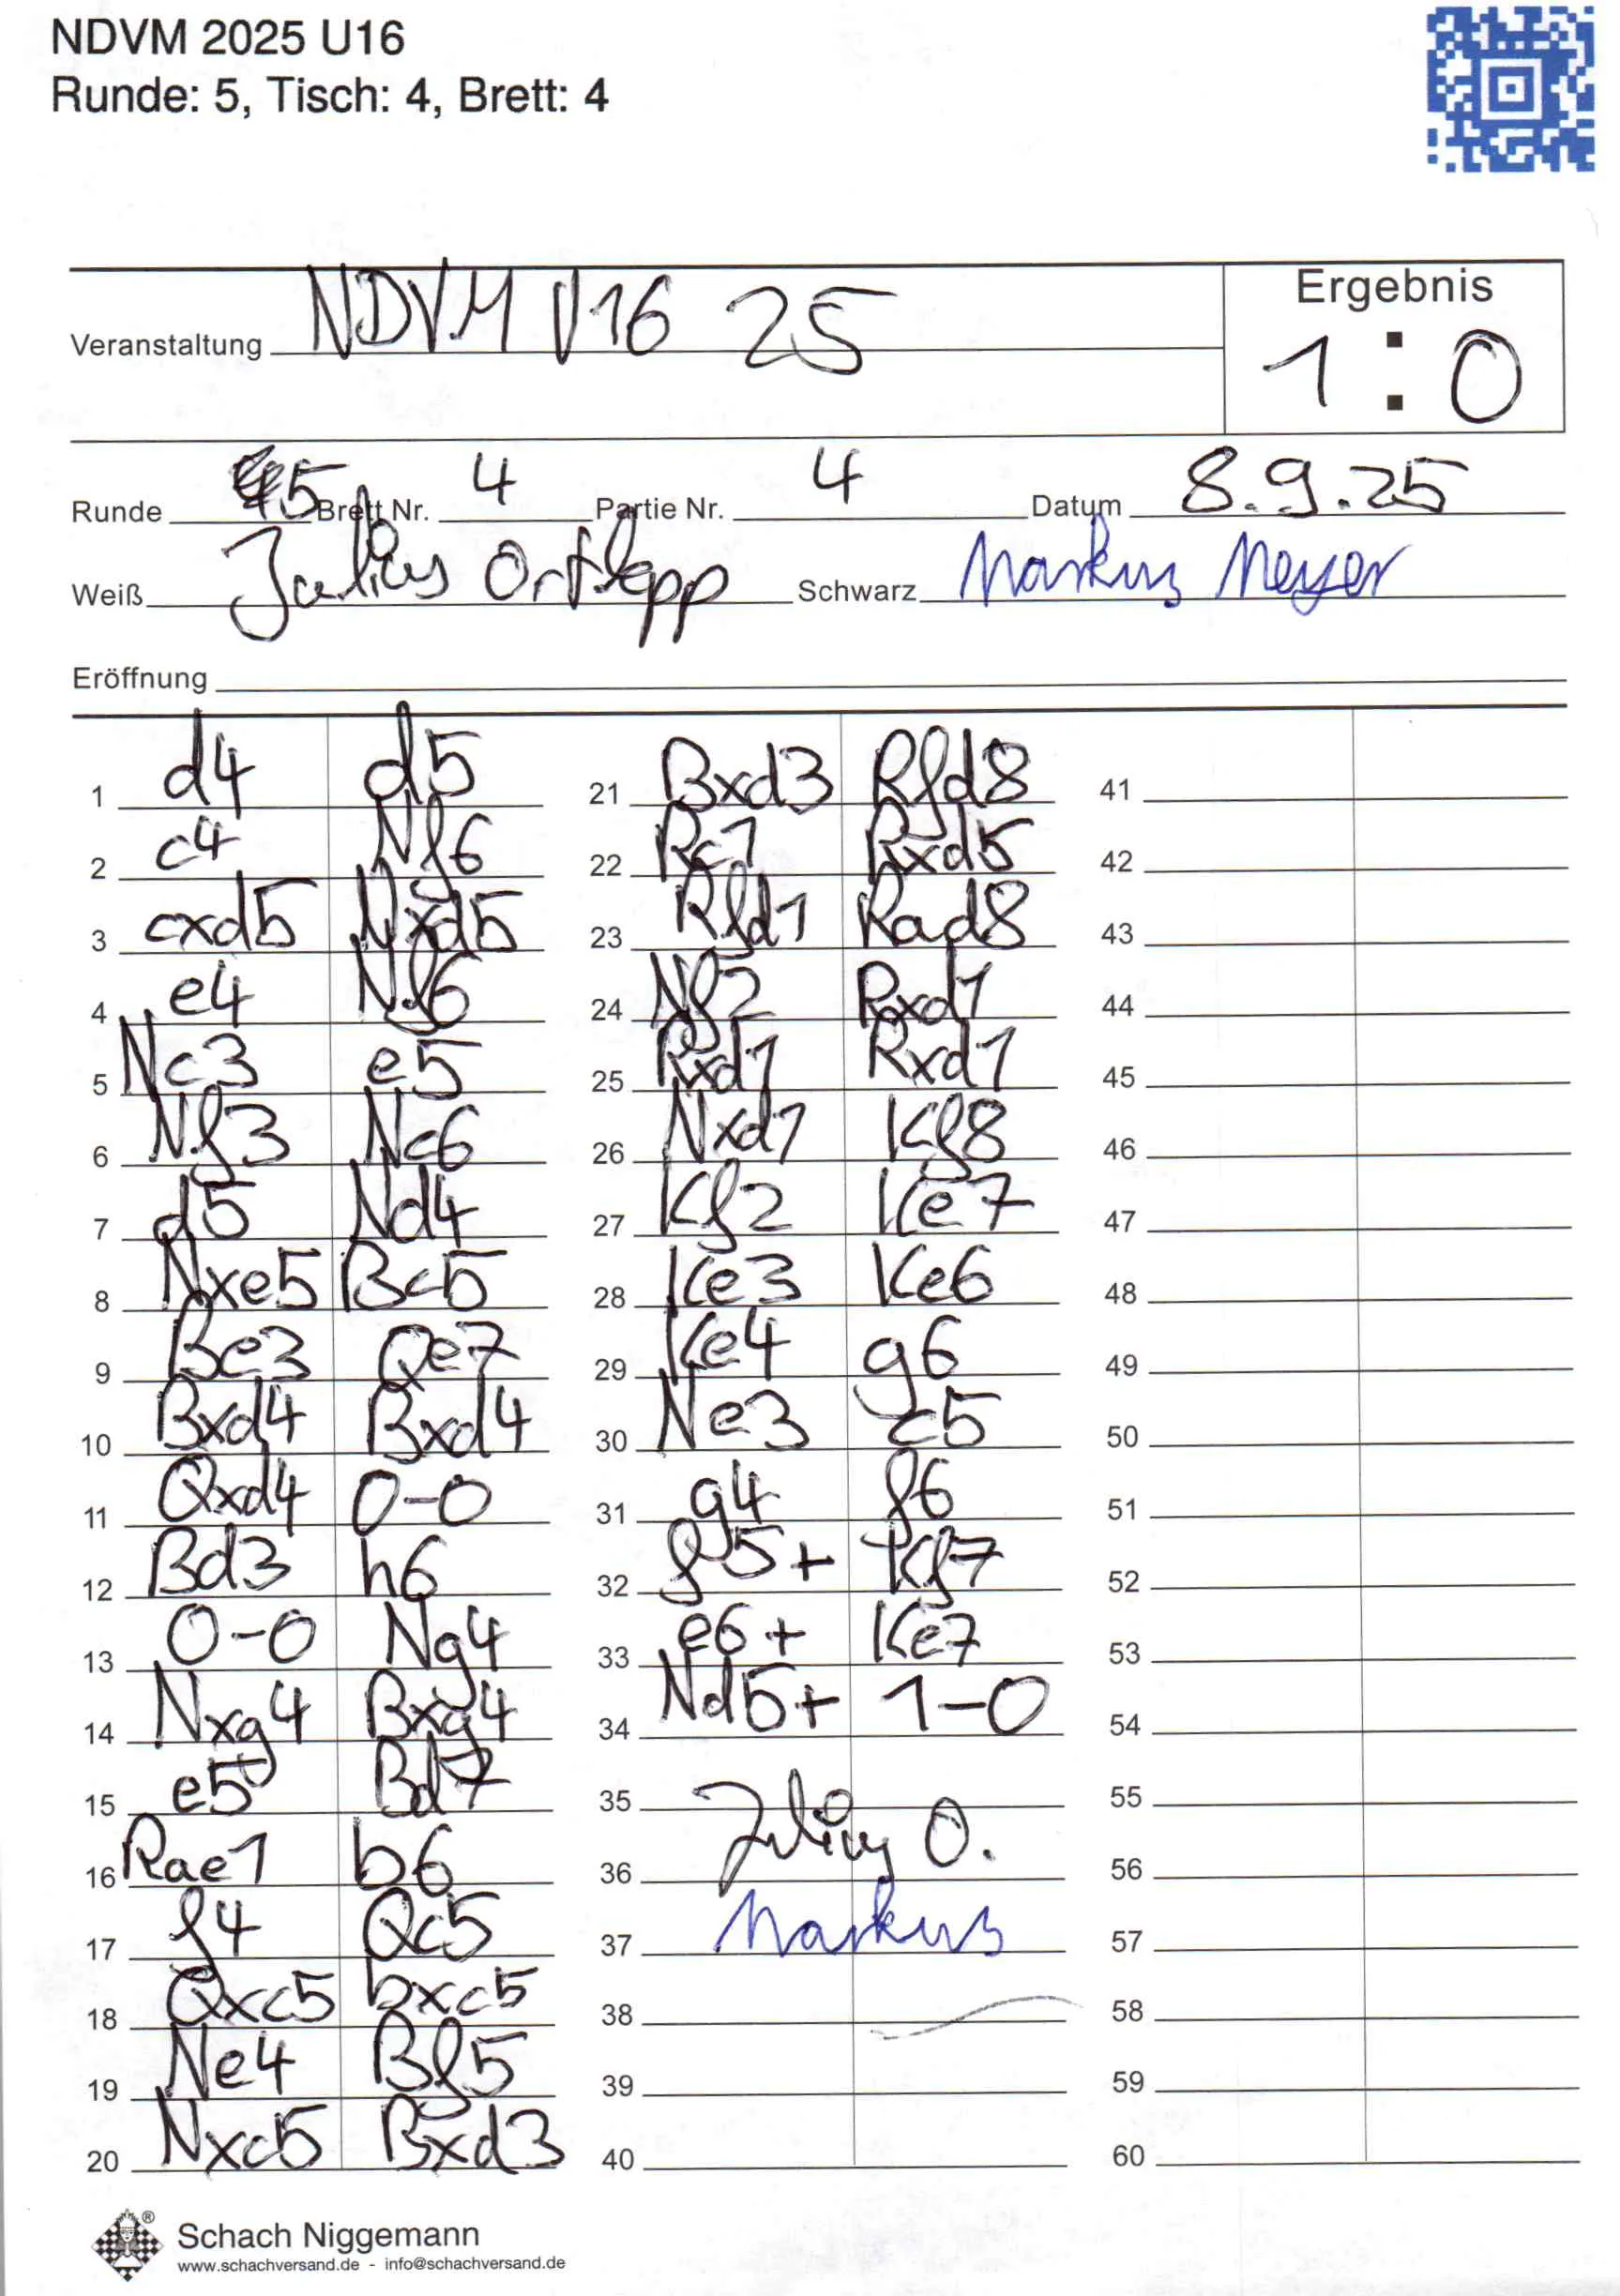 NDVM 2025 U16
Runde: 5, Tisch: 4, Brett: 4
Ergebnis
Veranstaltung NDVM U16 25
1 : 0
Runde 5 Brett Nr. 4 Partie Nr. 4 Datum 8.9.25
Weiß Julius Ortlepp Schwarz Markus Meyer
Eröffnung
1 d4 d5
2 c4 Nf6
3 cxd5 Nxd5
4 e4 Nf6
5 Nc3 e5
6 Nf3 Nc6
7 d5 Nd4
8 Nxe5 Bc5
9 Be3 Qe7
10 Bxd4 Bxd4
11 Qxd4 0-0
12 Bd3 h6
13 0-0 Ng4
14 Nxg4 Bxg4
15 e5 Bd7
16 Rae1 b6
17 f4 Qc5
18 Qxc5 bxc5
19 Ne4 Bf5
20 Nxc5 Bxd3
21 Bxd3 Rfd8
22 Rc1 Rxd5
23 Rfd1 Rad8
24 Nf2 Rxd1
25 Rxd1 Rxd1
26 Nxd1 Kf8
27 Kf2 Ke7
28 Ke3 Ke6
29 Ke4 g6
30 Ne3 c5
31 g4 f6
32 f5+ Kf7
33 e6+ Ke7
34 Nd5+ 1-0
35
36 Julius O.
37 Markus
38
39
40
41
42
43
44
45
46
47
48
49
50
51
52
53
54
55
56
57
58
59
60
Schach Niggemann
www.schachversand.de - info@schachversand.de